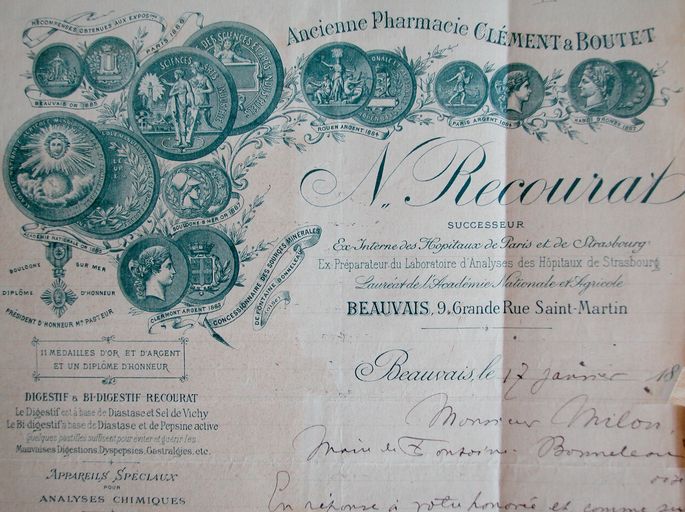 RÉCOMPENSES OBTENUES AUX EXPOSons
PARIS 1888
BEAUVAIS OR 1885
SCIENCES
DES SCIENCES
ROUEN ARGENT 1884
PARIS ARGENT
BOULOGNE S MER OR
ACADÉMIE NATIONALE OR
CLERMONT ARGENT
CONCESSIONNAIRE DES SOURCES MINÉRALES
DE FONTAINE BONNELEAU
(OISE)
BOULOGNE SUR MER
DIPLÔME D'HONNEUR
PRÉSIDENT D'HONNEUR Mr PASTEUR
11 MEDAILLES D'OR ET D'ARGENT
ET UN DIPLÔME D'HONNEUR
DIGESTIF & BI-DIGESTIF RECOURAT
Le Digestif est à base de Diastase et Sel de Vichy
Le Bi-digestif à base de Diastase et de Pepsine active
quelques pastilles suffisent pour éviter et guérir les
Mauvaises Digestions, Dyspepsies, Gastralgies, etc.
APPAREILS SPÉCIAUX
POUR
ANALYSES CHIMIQUES
Ancienne Pharmacie CLÉMENT & BOUTET
N. Recourat
SUCCESSEUR
Ex-Interne des Hôpitaux de Paris et de Strasbourg
Ex-Préparateur du Laboratoire d'Analyses des Hôpitaux de Strasbourg
Lauréat de l'Académie Nationale et Agricole
BEAUVAIS, 9, Grande Rue Saint-Martin
Beauvais, le 17 janvier 18
Monsieur Milon
Maire de Fontaine Bonneleau
oise
En réponse à votre honorée et comme